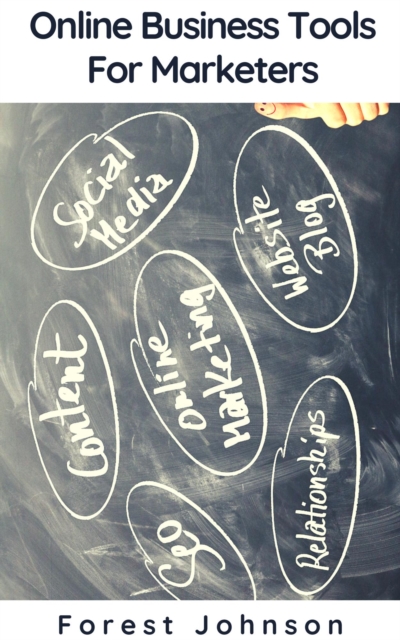 Online Business Tools
For Marketers
Social
Media
Website
Blog
Online
Marketing
Content
Relationships
SEO
Forest Johnson